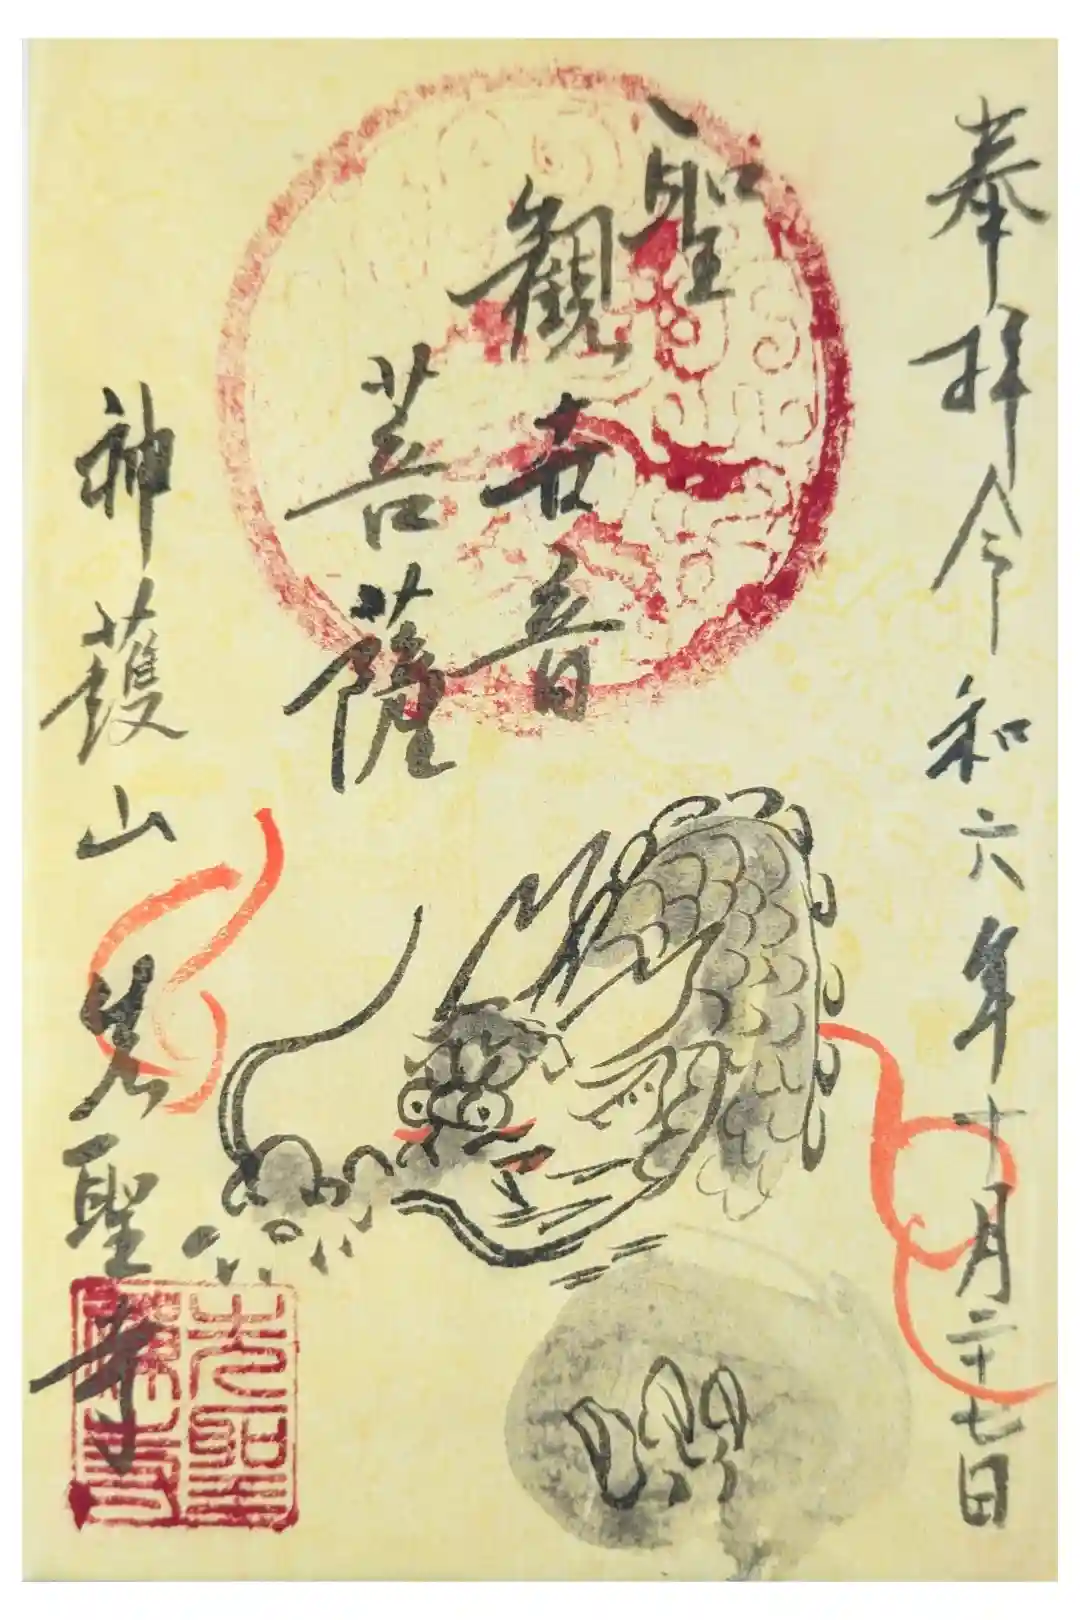 奉拝 令和六年十月二十七日
聖
観世音
菩薩
神護山 先聖寺
先聖
禪寺